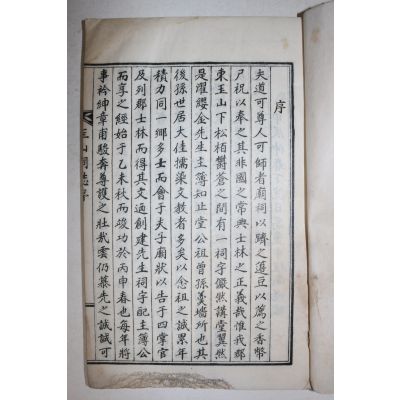 序
夫道可尊人可師者廟祠以躋之籩豆以薦之香幣
尸祝以奉之其非國之常典士林之正義哉惟我郡
東王山下松栢欝蒼之間有一祠宇儼然講堂翼然
是濯纓金先生主簿知止堂公祖曾孫羹墻所也其
後孫世居大佳擂渠文教者多矣以念祖之誠累年
積力同一鄉多士而會于夫子廟狀以告于四掌官
及列郡士林而得其文通創建先生祠宇配主簿公
而享之經始于乙未秋而竣功於丙申春也每年將
事衿紳章甫駿奔尊護之壯哉雲仍慕先之誠誠可
王山祠誌序